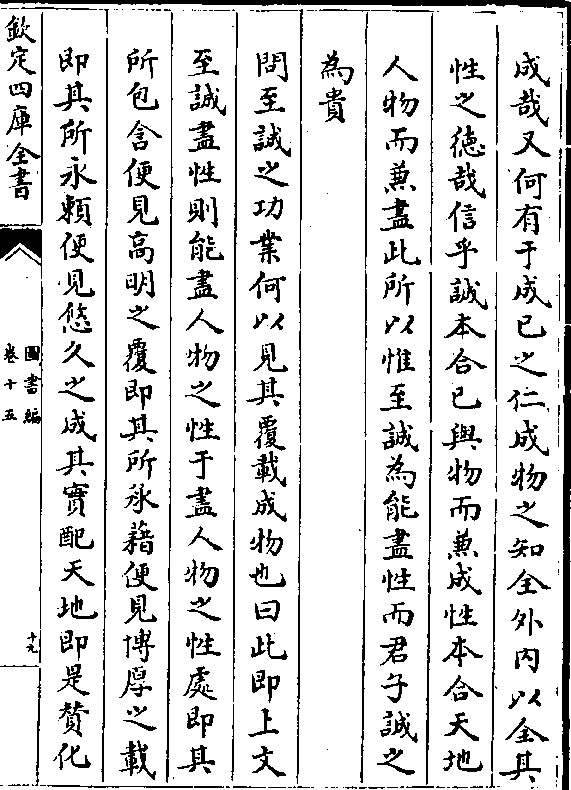 成哉又何有于成已之仁成物之知全外内以全其
性之徳哉信乎誠本合已與物而兼成性本合天地
人物而兼盡此所以惟至誠為能盡性而君子誠之
為貴
問至誠之功業何以見其覆載成物也曰此即上文
至誠盡性則能盡人物之性于盡人物之性處即其
所包含便見高明之覆即其所承藉便見博厚之載
即其所永頼便見悠久之成其實配天地即是賛化
欽定四庫全書
圖書編
卷十五
十九